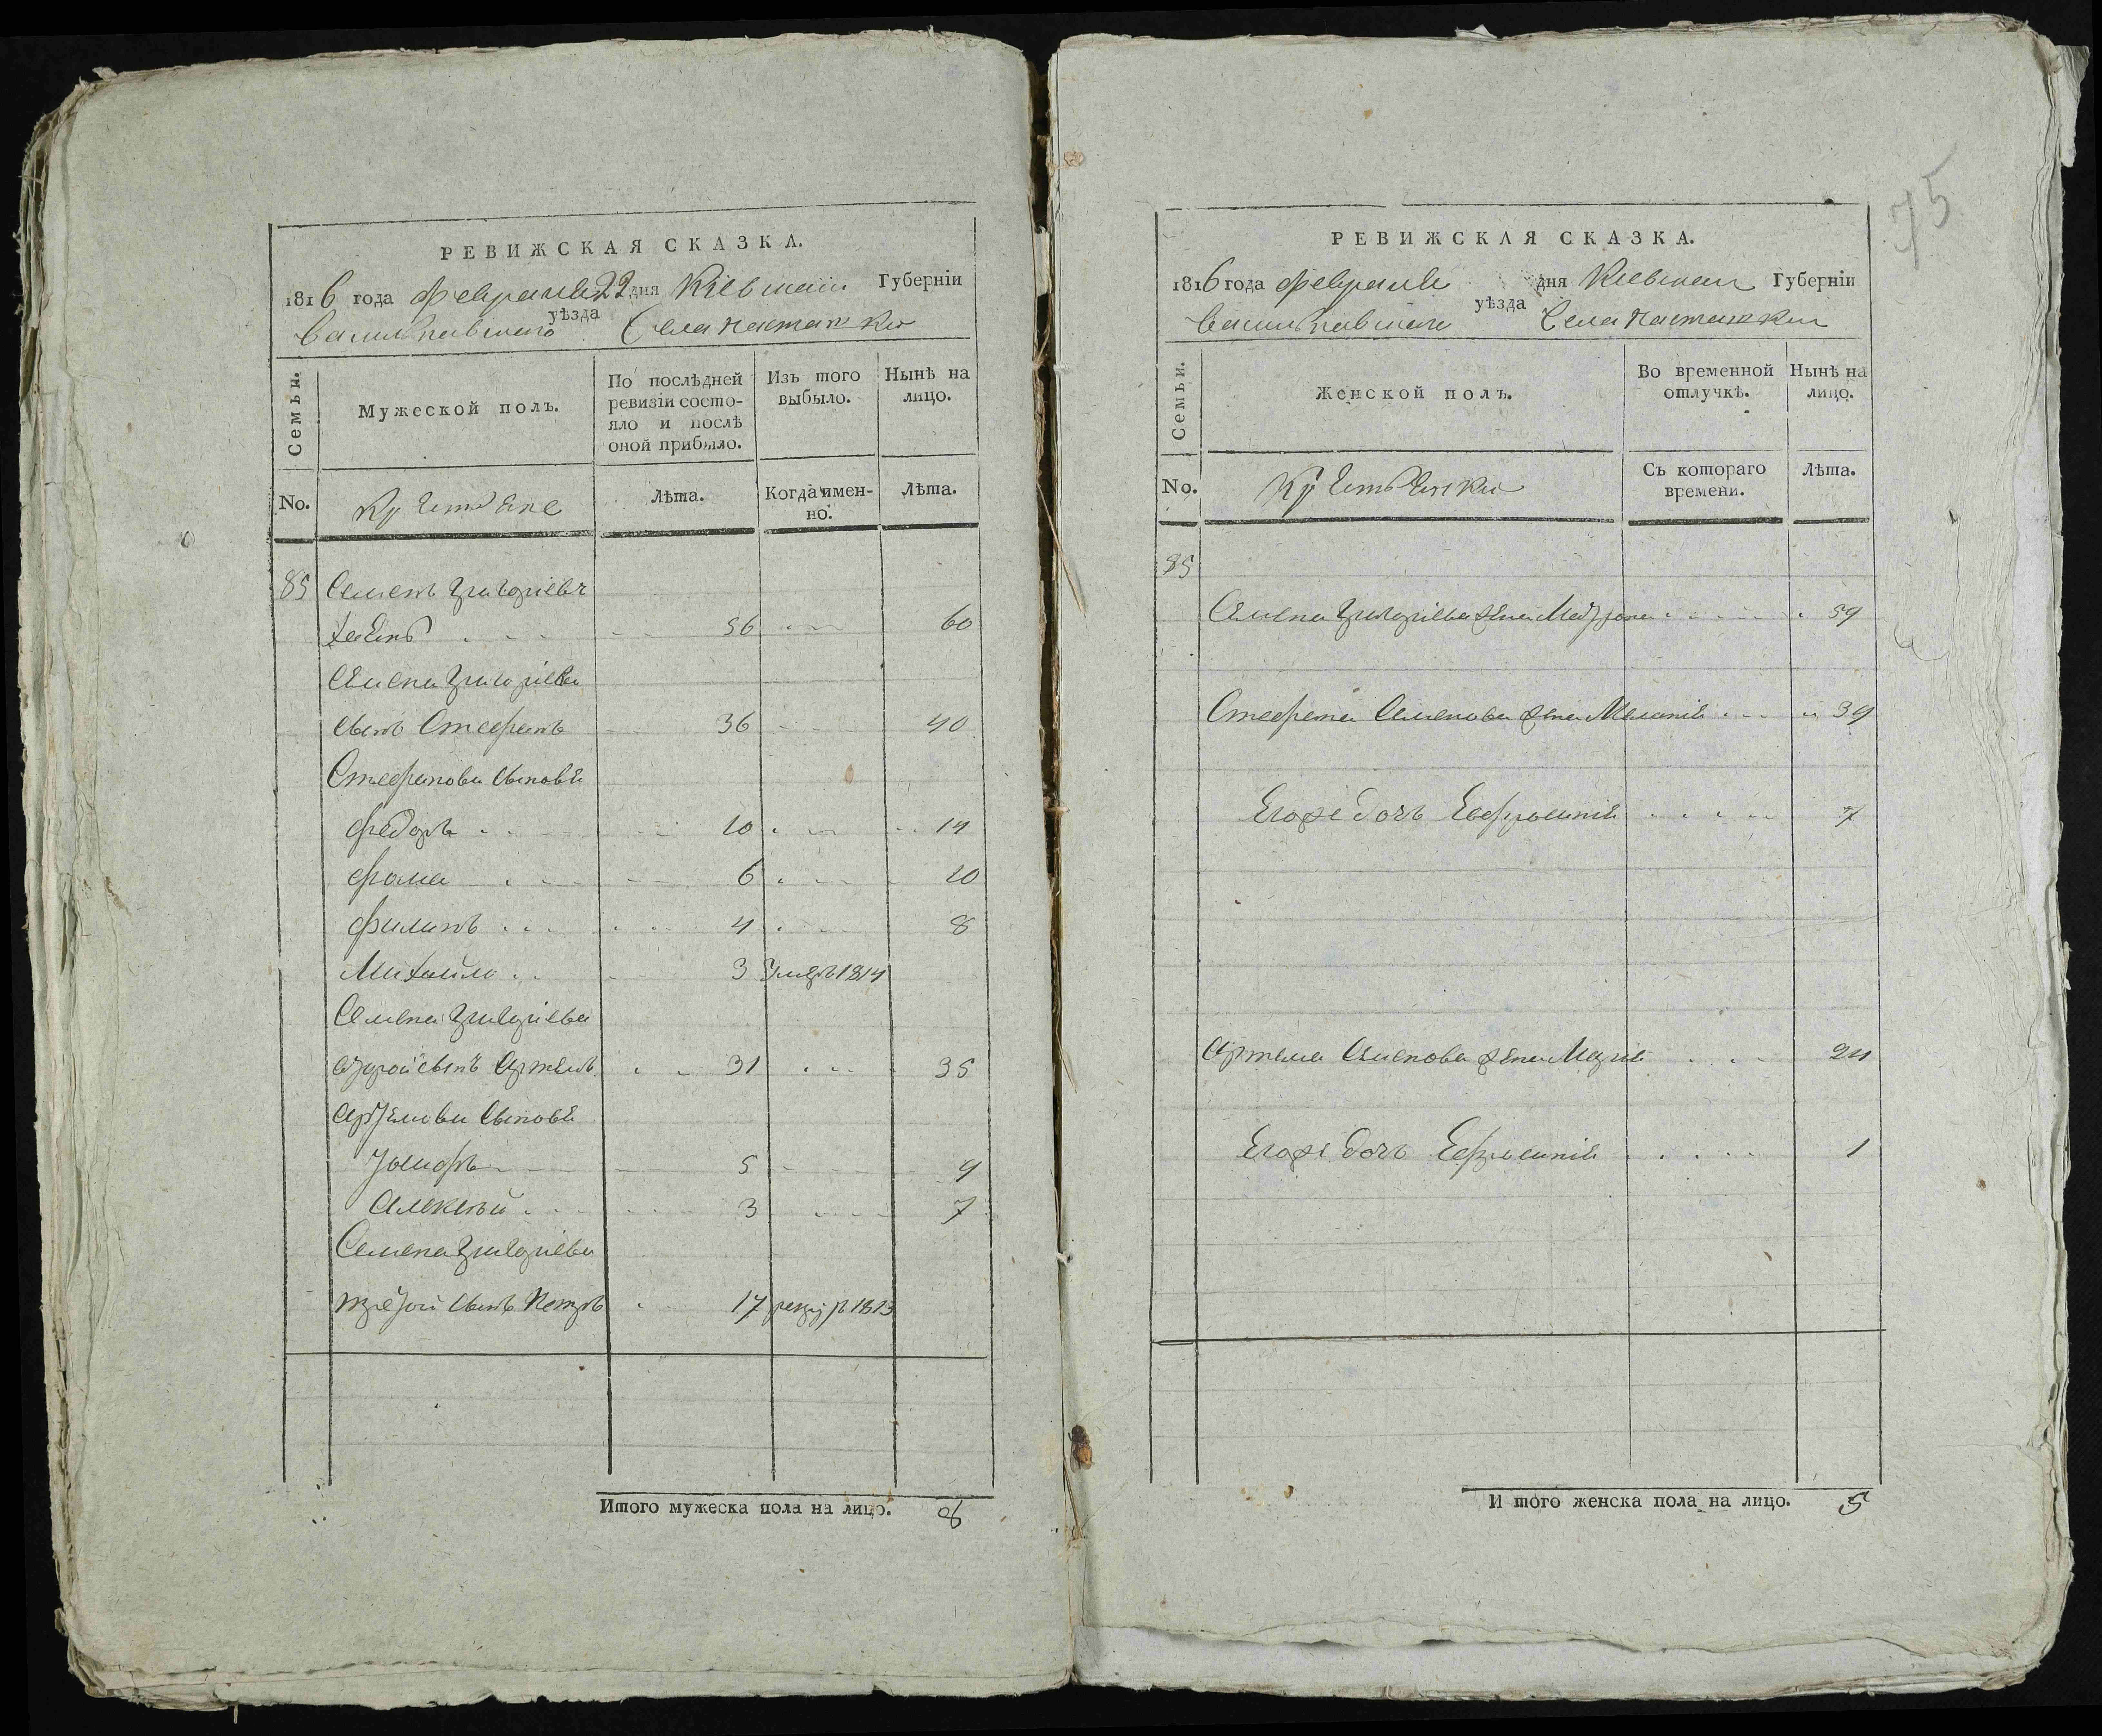 75
РЕВИЖСКАЯ СКАЗКА.
1816 года февраля 22 дня Кіевской Губерніи
Васильковского уѣзда Села
Семьи.
Мужеской полъ.
По послѣдней ревизіи состо-
яло и послѣ
оной прибыло.
Изъ того
выбыло.
Нынѣ на
лицо.
No.
Крестьяне
Лѣта.
Когда имен-
но.
Лѣта.
85 Семенъ Григоріевъ
56 60
Семена Григоріева
сынъ Стефанъ 36 40
Стефановы сыновья
Федоръ 10 14
Фома 6 10
Филипъ 4 8
Михайло 3 умеръ 1814
Семена Григоріева
второй сынъ Артемъ 31 35
Артемовы сыновья
Іосифъ 5 9
Алексѣй 3 7
Семена Григоріева
третой сынъ Петръ 17 рекру в 1813
Итого мужеска пола на лицо. 8
РЕВИЖСКАЯ СКАЗКА.
1816 года февраля дня Кіевской Губерніи
Васильковского уѣзда Села
Семьи.
Женской полъ.
Во временной
отлучкѣ.
Нынѣ на
лицо.
No.
Крестьянки
Съ котораго
времени.
Лѣта.
85
Семена Григоріева жена Мотрона 59
Стефана Семенова жена Меланія 39
Егоже дочь Евфросинія 7
Артема Семенова жена Марія 24
Егоже дочь Ефросинія 1
И того женска пола на лицо. 5